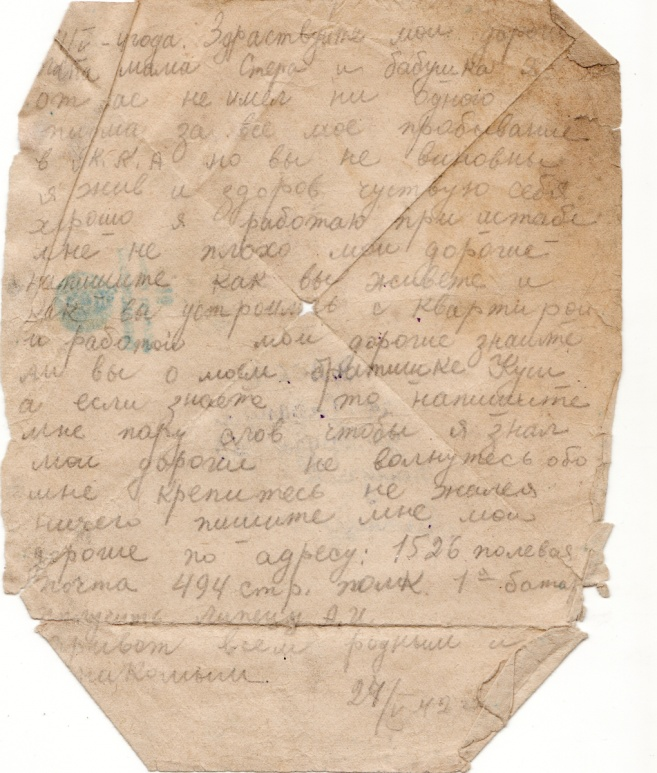 угода. Здраствуйте мои дороги
папа мама Стера и бабушка я
от вас не имел ни одного
письма за все мое прабывание
в Р.К.К.А но вы не виновны
я жив и здоров чуствую себя
хорошо я работаю при штабе
мне не плохо мои дорогие
напишите как вы живете и
как вы устроились с квартирой
и работой мои дорогие знаите
ли вы о моем братишке
а если знаете то напишите
мне пару слов чтобы я знал
мои дороги не волнутесь обо
мне крепитесь не жалея
ничего пишите мне мои
дорогие по адресу: 1526 полевая
почта 494 стр. полк. 1й бата
получить А.И.
привет всем родным и
знакомым.
24/V 42 г